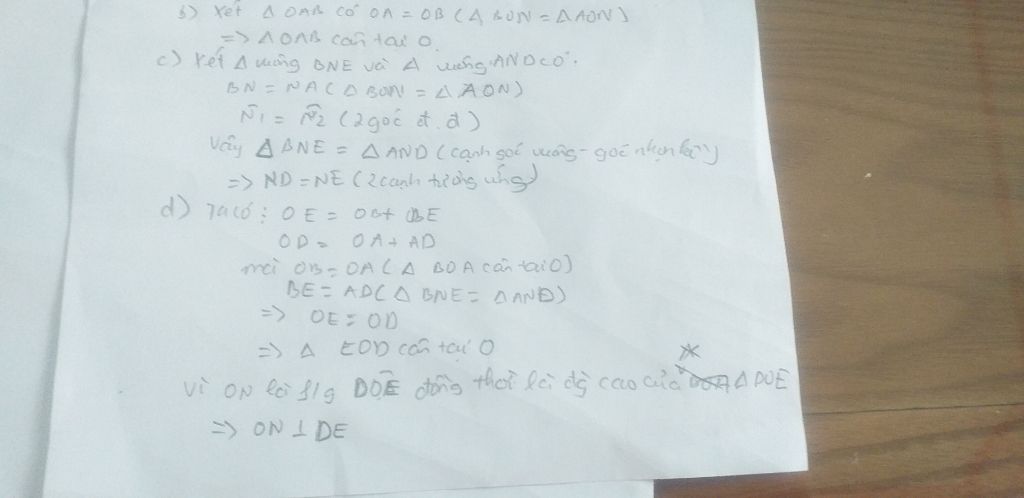 b) Xét Δ OAB có OA = OB (Δ BON = ΔAON)
=> ΔOAB cân tại O.
c) Xét Δ vuông BNE và Δ vuông AND có:
BN = NA (Δ BON = Δ AON)
N̂1 = N̂2 (2 góc đ.đ)
Vậy Δ BNE = Δ AND (cạnh góc vuông - góc nhọn kề)
=> ND = NE (2 cạnh tương ứng)
d) Ta có: OE = OB + BE
OD = OA + AD
mà OB = OA (Δ BOA cân tại O)
BE = AD (Δ BNE = Δ AND)
=> OE = OD
=> Δ EOD cân tại O
Vì ON là f/g DÔE đồng thời là đg cao của Δ DOE
=> ON ⊥ DE